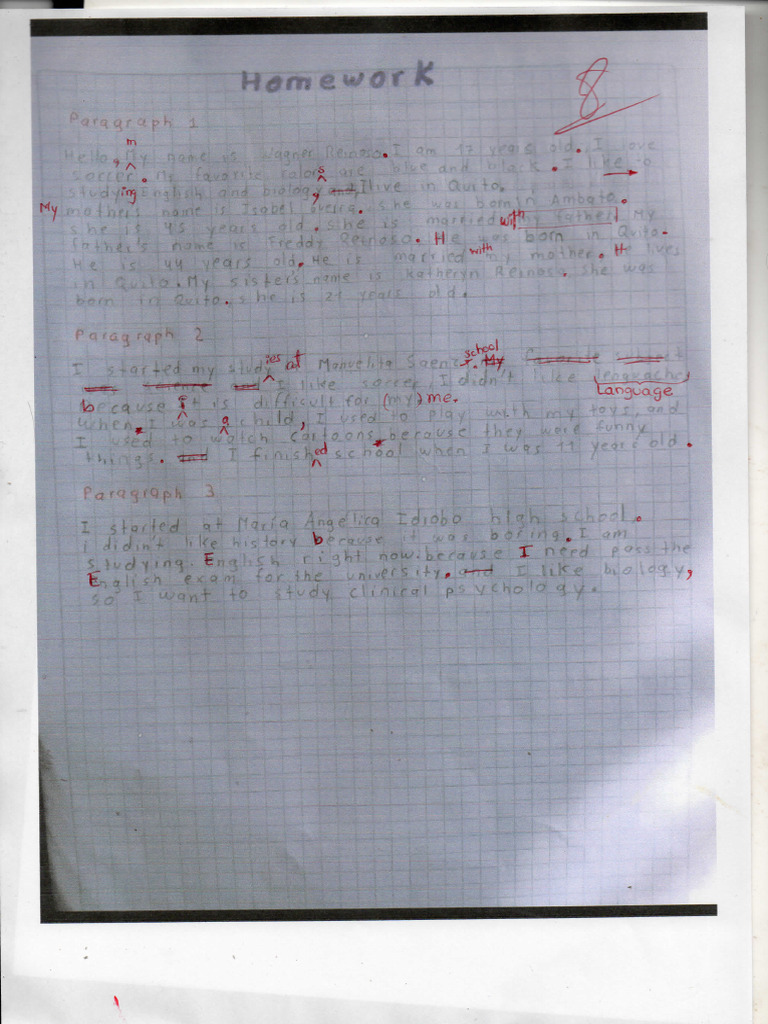 Homework
8
Paragraph 1
m
Hello, My name is Wagner Reinoso. I am 17 years old. I love
soccer. My favorite colors are blue and black. I like to
studying English and biology, and I live in Quito.
My mother's name is Isabel. she was born in Ambato.
she is 45 years old. she is married with my father. My
father's name is Freddy Reinoso. He was born in Quito.
He is 44 years old. He is married with my mother. He lives
in Quito. My sister's name is Katheryn Reinoso. she was
born in Quito. she is 21 years old.
Paragraph 2
ies at school
I started my study Manuelita Saenz. My
and I like soccer. I didn't like lenguache
because it is difficult for (my) me. Language
When I was a child, I used to play with my toys, and
I used to watch cartoons because they were funny
things. and I finished school when I was 11 years old.
Paragraph 3
I started at María Angélica Idrobo high school.
i didin't like history because it was boring. I am
studying. English right now. because I need pass the
English exam for the university. and I like biology,
so I want to study clinical psychology.